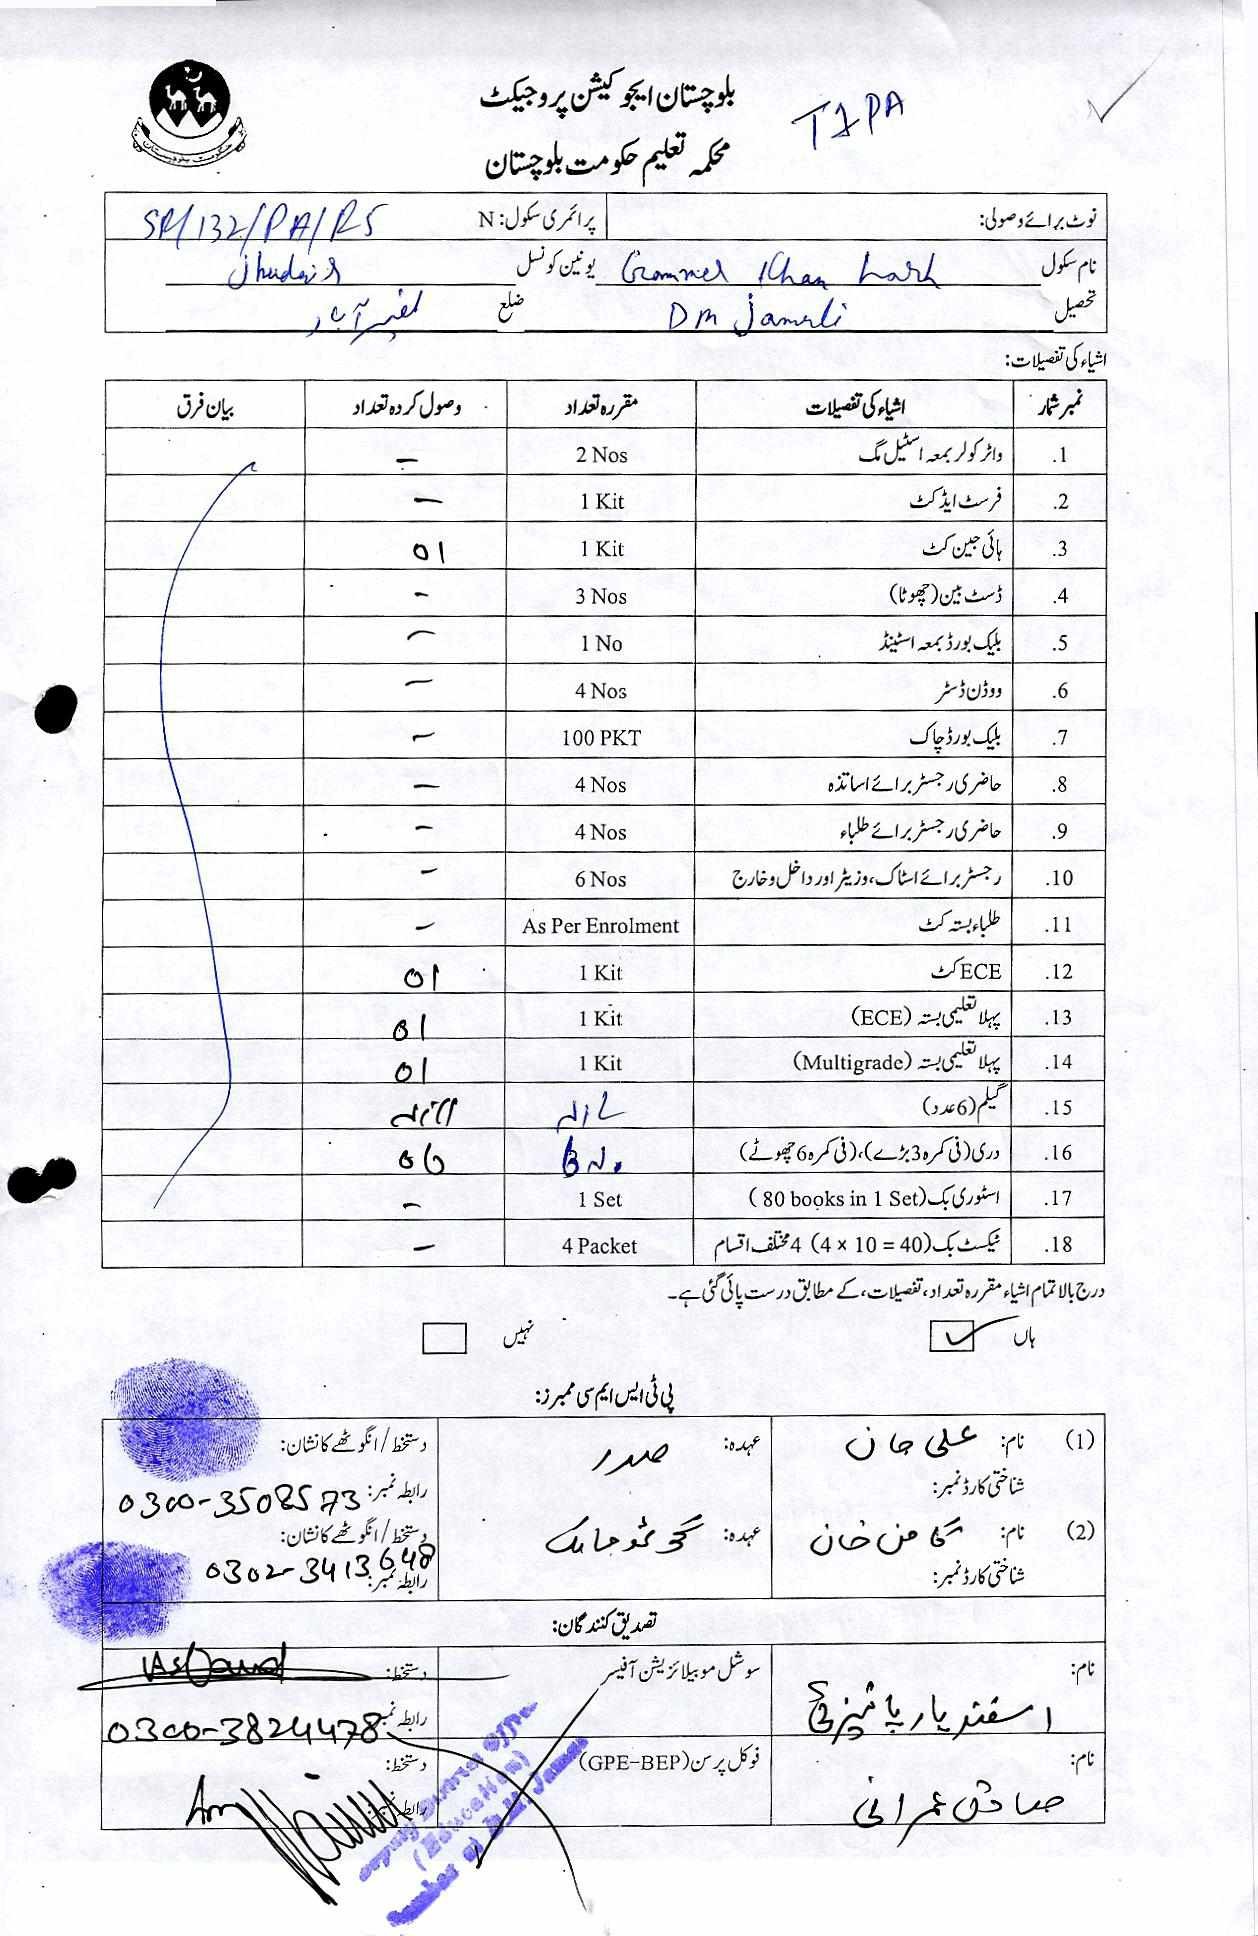 بلوچستان ایجوکیشن پروجیکٹ
T1PA
محکمہ تعلیم حکومت بلوچستان
نوٹ برائے وصولی: پرائمری سکول: N SR/132/PA/RS
نام سکول Grammer Khan Lark یونین کونسل
تحصیل DM Jamali ضلع نصیر آباد
اشیاء کی تفصیلات:
نمبر شمار اشیاء کی تفصیلات مقررہ تعداد وصول کردہ تعداد بیان فرق
.1 واٹر کولر بمعہ اسٹیل مگ 2 Nos –
.2 فرسٹ ایڈ کٹ 1 Kit –
.3 ہائی جین کٹ 1 Kit 01
.4 ڈسٹ بین (چھوٹا) 3 Nos –
.5 بلیک بورڈ بمعہ اسٹینڈ 1 No –
.6 ووڈن ڈسٹر 4 Nos –
.7 بلیک بورڈ چاک 100 PKT –
.8 حاضری رجسٹر برائے اساتذہ 4 Nos –
.9 حاضری رجسٹر برائے طلباء 4 Nos –
.10 رجسٹر برائے اسٹاک، وزیٹر اور داخل و خارج 6 Nos –
.11 طلباء بستہ کٹ As Per Enrolment –
.12 ECE کٹ 1 Kit 01
.13 پہلا تعلیمی بستہ (ECE) 1 Kit 01
.14 پہلا تعلیمی بستہ (Multigrade) 1 Kit 01
.15 گیلم (6 عدد) Nil Nill
.16 دری (فی کمرہ 3 بڑے)، (فی کمرہ 6 چھوٹے) 6 No. 06
.17 اسٹوری بک (80 books in 1 Set) 1 Set –
.18 ٹیکسٹ بک (4 x 10 = 40) 4 مختلف اقسام 4 Packet –
درج بالا تمام اشیاء مقررہ تعداد، تفصیلات، کے مطابق درست پائی گئی ہے۔
ہاں ✓ نہیں
پی ٹی ایس ایم سی ممبرز:
(1) نام: علی جان عہدہ: صدر دستخط / انگوٹھے کا نشان:
شناختی کارڈ نمبر: رابطہ نمبر: 0300-3508573
(2) نام: گامن خان عہدہ: دستخط / انگوٹھے کا نشان:
شناختی کارڈ نمبر: رابطہ نمبر: 0302-3413648
تصدیق کنندگان:
نام: اسفندیار سوشل موبیلائزیشن آفیسر دستخط:
رابطہ نمبر: 0300-3824478
نام: صادق عمرانی فوکل پرسن (GPE-BEP) دستخط:
رابطہ نمبر:
Deputy District Officer
(Education)